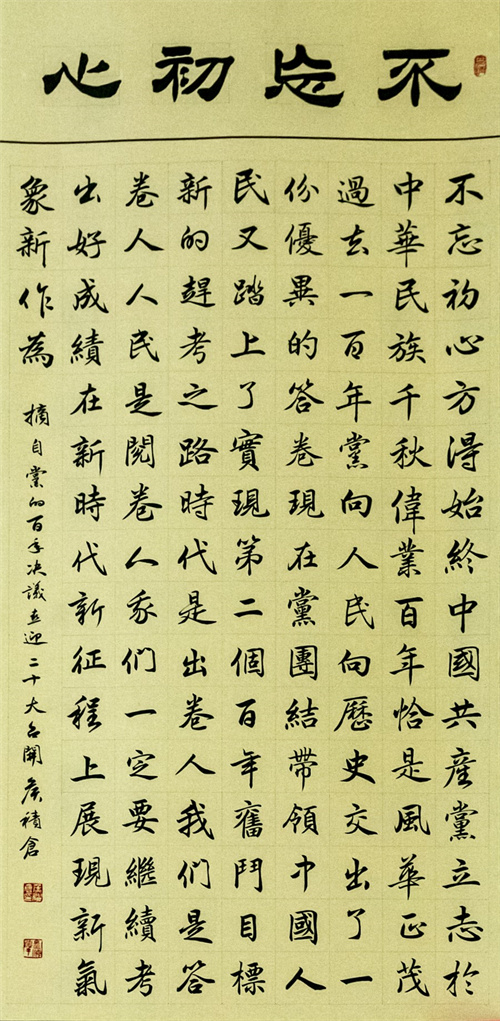 不忘初心
不忘初心方得始終中國共產黨立志於
中華民族千秋偉業百年恰是風華正茂
過去一百年黨向人民向歷史交出了一
份優異的答卷現在黨團結帶領中國人
民又踏上了實現第二個百年奮鬥目標
新的趕考之路時代是出卷人我們是答
卷人人民是閱卷人我們一定要繼續考
出好成績在新時代新征程上展現新氣
象新作為
摘自黨的百年决議喜迎二十大召開